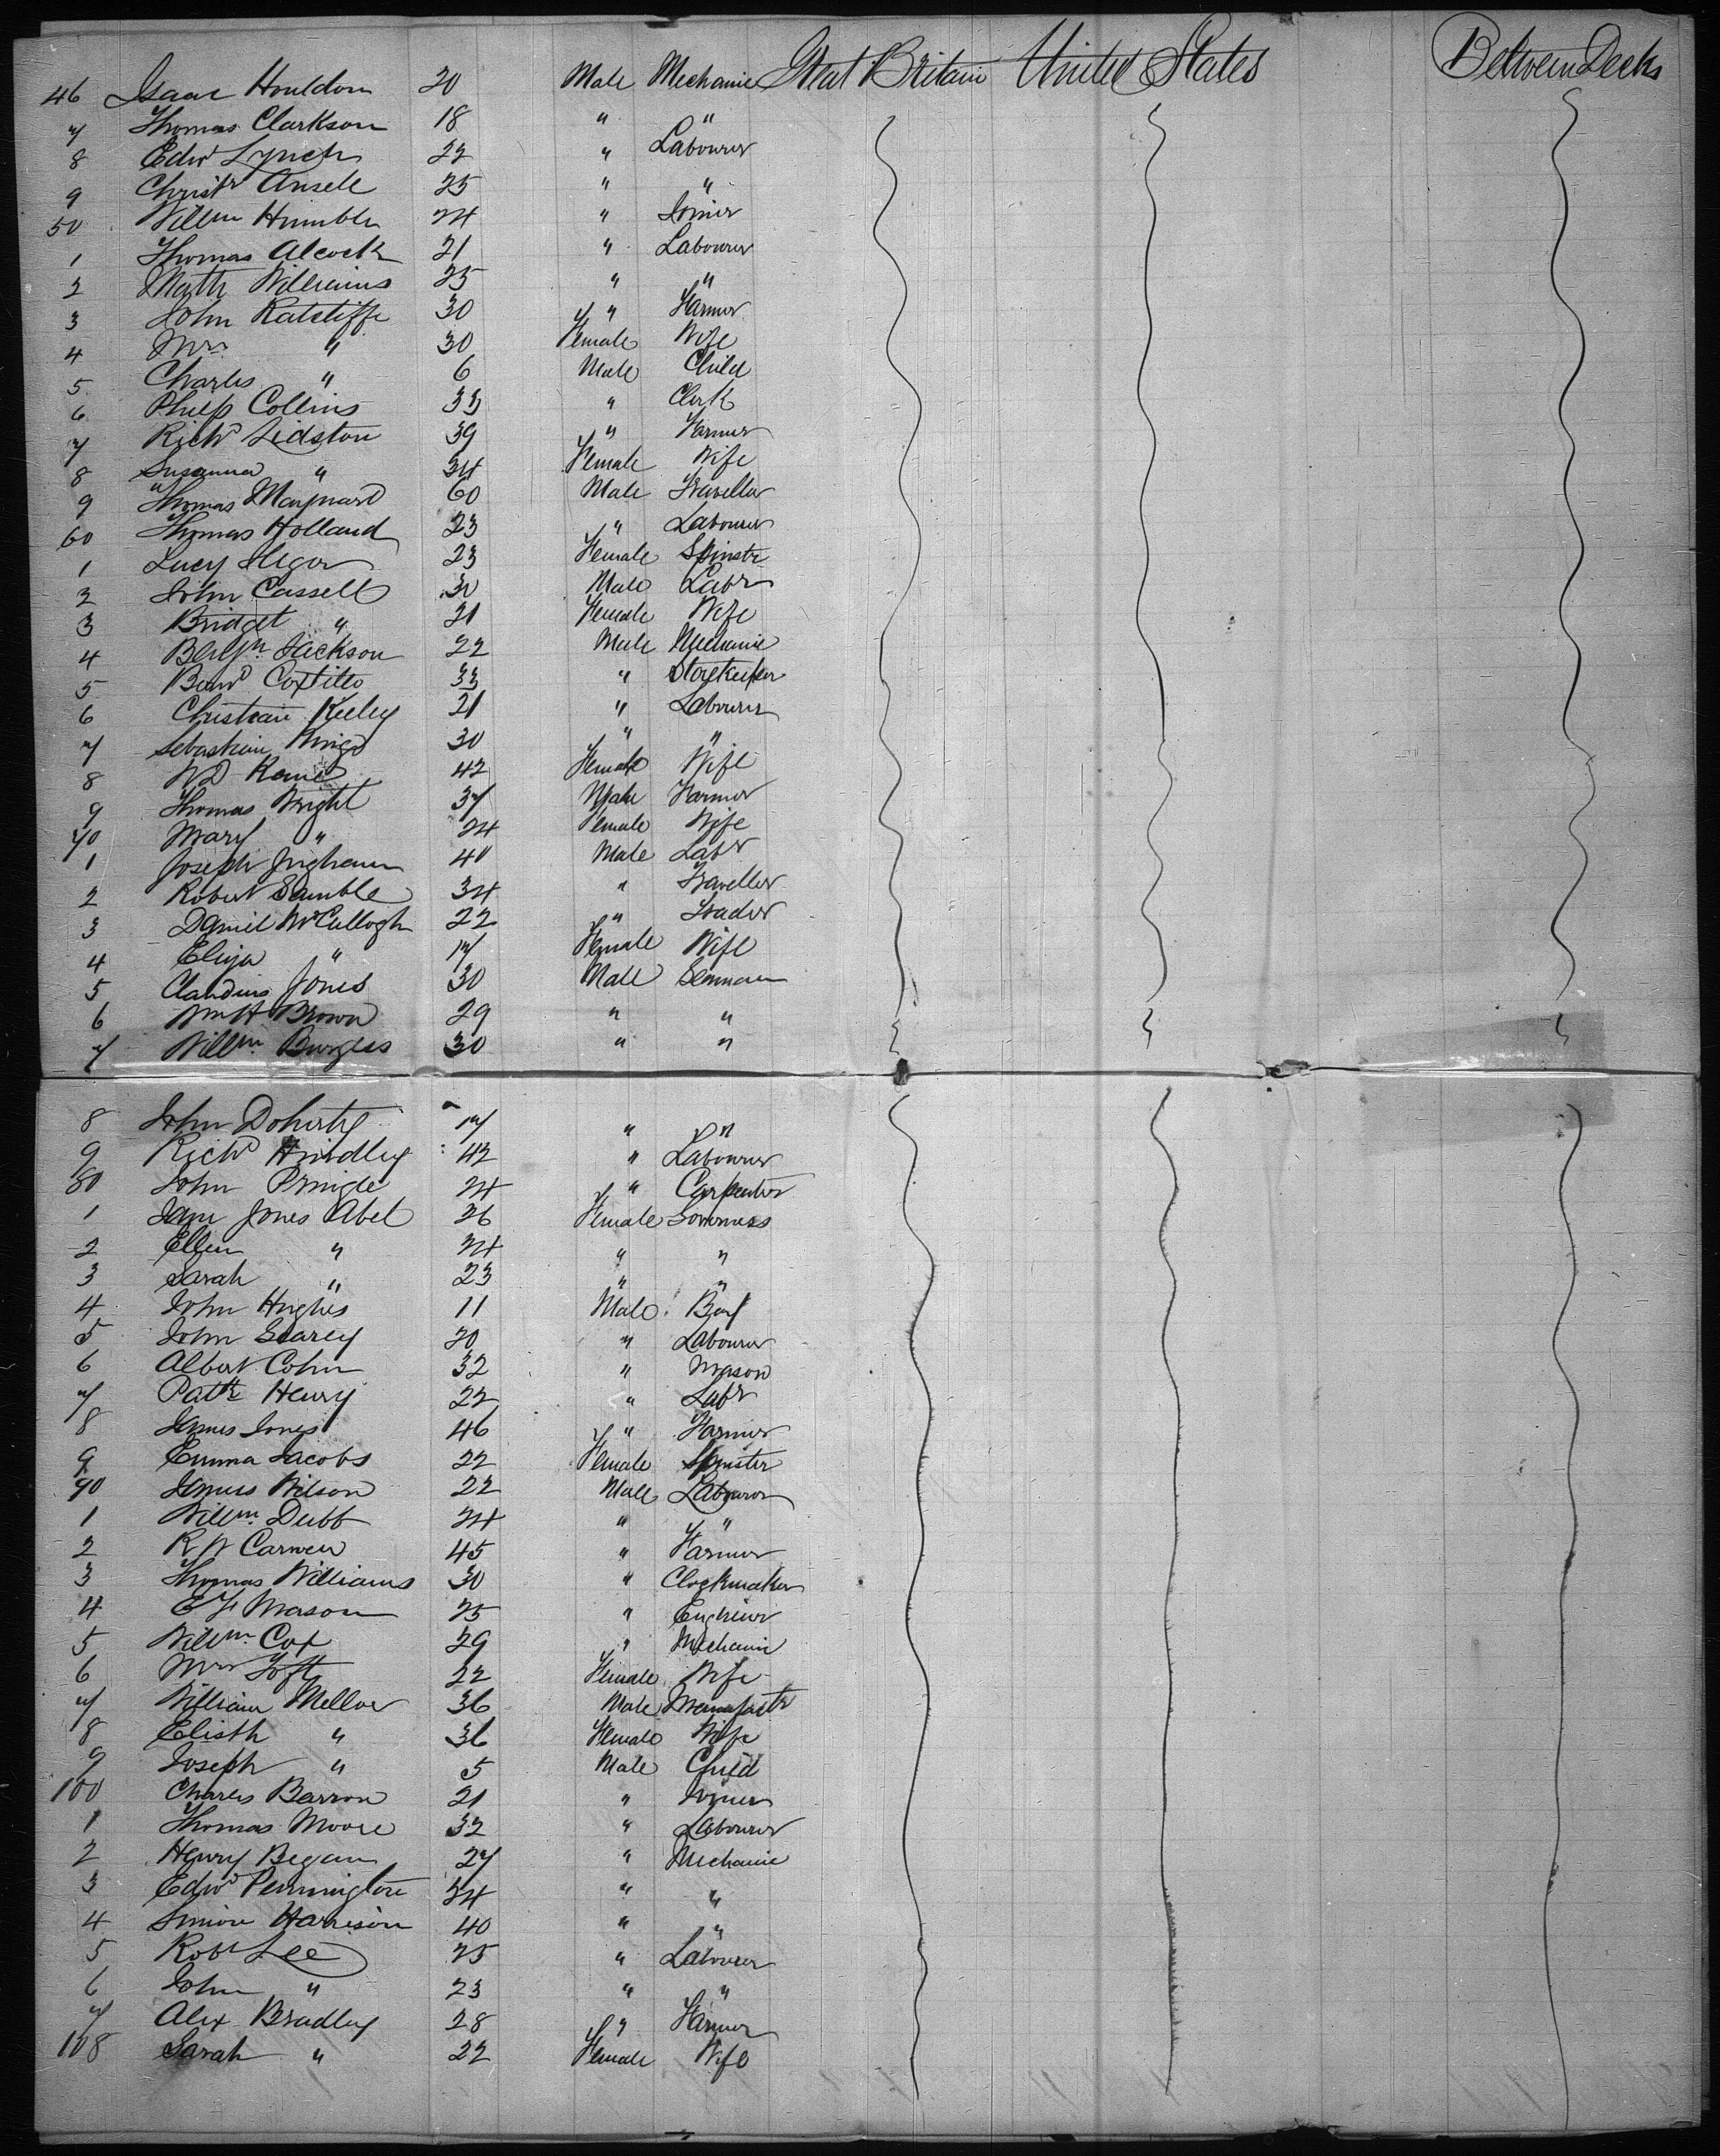 46 Isaac Houldon 20 Male Mechanic Great Britain United States Between Decks
7 Thomas Clarkson 18 " "
8 Edwd Lynch 22 " Labourer
9 Christr Ansell 25 " "
50 Willm Humble 24 " Joiner
1 Thomas Alcock 21 " Labourer
2 Matth Williams 25 " "
3 John Ratcliffe 30 " Farmer
4 Mrs " 30 Female Wife
5 Charles " 6 Male Child
6 Philip Collins 33 " Clerk
7 Richd Lidston 39 " Farmer
8 Susanna " 34 Female Wife
9 Thomas Maynard 60 Male Traveller
60 Thomas Holland 23 " Labourer
1 Lucy 23 Female Spinstr
2 John Cassell 30 Male Labr
3 Bridget " 21 Female Wife
4 Benjn Jackson 22 Male Mechanic
5 33 " Storekeeper
6 Christian Keeley 21 " Labourer
7 Sebastian 30 " "
8 42 Female Wife
9 Thomas Wright 37 Male Farmer
70 Mary " 24 Female Wife
1 Joseph Ingham 40 Male Labr
2 Robert Gamble 34 " Traveller
3 Daniel McCullogh 22 " Trader
4 Eliza " 17 Female Wife
5 Claudius Jones 30 Male Seaman
6 Wm H Brown 29 " "
7 Willm Burgess 30 " "
8 John Doherty 17 " "
9 Richd Hindley 42 " Labourer
80 John Pringle 24 " Carpenter
1 Jane Jones Abel 26 Female Governess
2 Ellen " 24 " "
3 Sarah " 23 " "
4 John Hughes 11 Male Boy
5 John Searcy 20 " Labourer
6 Albert Cohn 32 " Mason
7 Patk Henry 22 " Labr
8 James Jones 46 " Farmer
9 Emma Jacobs 22 Female Spinster
90 James Wilson 22 Male Labourer
1 Willm Dubb 24 " "
2 R W Carwen 45 " Farmer
3 Thomas Williams 30 " Clockmaker
4 E F Mason 25 " Engineer
5 Willm Cox 29 " Mechanic
6 Mrs Toft 22 Female Wife
7 William Mellor 36 Male
8 Elisth " 36 Female Wife
9 Joseph " 5 Male Child
100 Charles Barron 21 " Joiner
1 Thomas Moore 32 " Labourer
2 Henry Began 27 " Mechanic
3 Edwd Pennington 34 " "
4 Simion Harrison 40 " "
5 Robt Lee 25 " Labourer
6 John " 23 " "
7 Alex Bradley 28 " Farmer
108 Sarah " 22 Female Wife